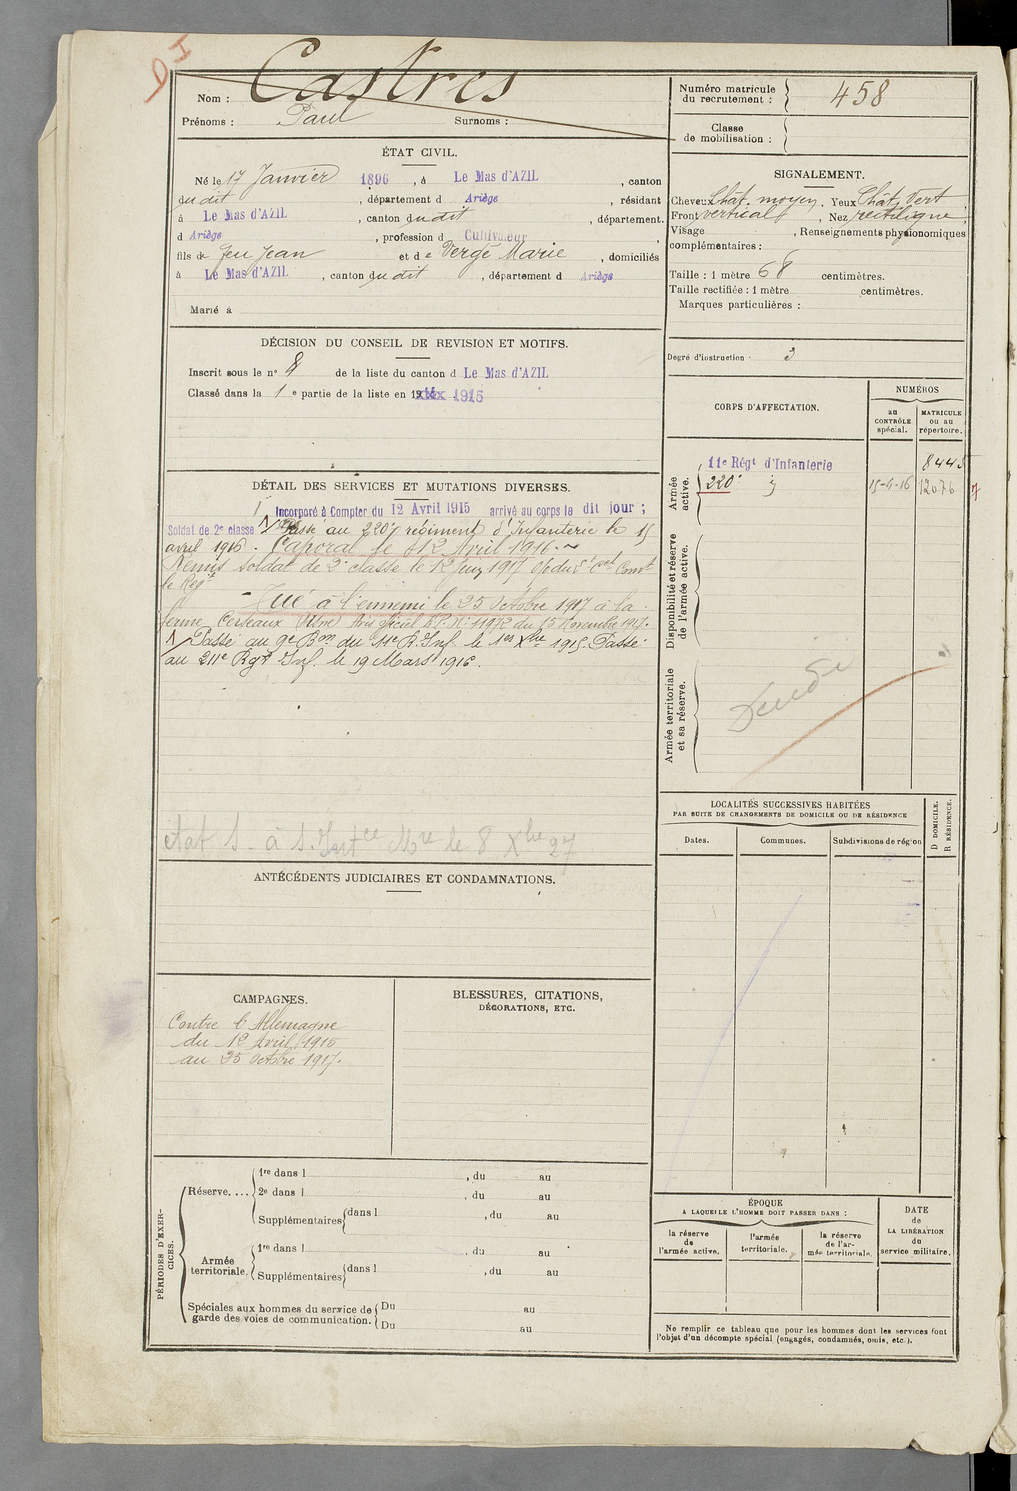 Castres
Nom :
Prénoms : Paul Surnoms :
Numéro matricule du recrutement : 458
Classe de mobilisation :
ÉTAT CIVIL.
Né le 17 Janvier 1896, à Le Mas d'AZIL, canton
du dit, département d Ariège, résidant
à Le Mas d'AZIL, canton du dit, département.
d Ariège, profession d Cultivateur,
fils de feu Jean et de Vergé Marie, domiciliés
à Le Mas d'AZIL, canton du dit, département d Ariège
Marié à
SIGNALEMENT.
Cheveux Chât. moyen, Yeux Chât. Vert
Front vertical, Nez rectiligne;
Visage , Renseignements physionomiques
complémentaires :
Taille : 1 mètre 68 centimètres.
Taille rectifiée : 1 mètre centimètres.
Marques particulières :
Degré d'instruction : 3
DÉCISION DU CONSEIL DE REVISION ET MOTIFS.
Inscrit sous le n° 8 de la liste du canton d Le Mas d'AZIL
Classé dans la 1e partie de la liste en 1915
CORPS D'AFFECTATION.
NUMÉROS
au CONTRÔLE spécial.
MATRICULE ou au répertoire.
Armée active.
11e Régt d'Infanterie 8445
220e 15-4-16 12076
Disponibilité et réserve de l'armée active.
Armée territoriale et sa réserve.
DÉTAIL DES SERVICES ET MUTATIONS DIVERSES.
Incorporé à Compter du 12 Avril 1915 arrivé au corps le dit jour ;
Soldat de 2e classe Passé au 220e régiment d'Infanterie le 15
avril 1916. Caporal le 12 Avril 1916.
Remis soldat de 2e classe le 12 Juin 1917 du Lt Cel Comt
le Regt
Tué à l'ennemi le 25 Octobre 1917 à la
ferme Certeaux avis officiel N° 11972 du 15 Novembre 1917.
Passe au 9e Bon du 11e R. Inf. le 1er Xbre 1915. Passé
au 211e Rgt Inf. le 19 Mars 1916.
état S. à S. Intce Mre le 8 Xbre 27
LOCALITÉS SUCCESSIVES HABITÉES
PAR SUITE DE CHANGEMENTS DE DOMICILE OU DE RÉSIDENCE
Dates. Communes. Subdivisions de région
D DOMICILE.
R RÉSIDENCE.
ANTÉCÉDENTS JUDICIAIRES ET CONDAMNATIONS.
CAMPAGNES.
Contre l'Allemagne
du 12 Avril 1915
au 25 Octobre 1917.
BLESSURES, CITATIONS,
DÉCORATIONS, ETC.
PÉRIODES D'EXERCICES.
Réserve....
1re dans l , du au
2e dans l , du au
Supplémentaires dans l , du au
Armée territoriale.
1re dans l , du au
Supplémentaires dans l , du au
Spéciales aux hommes du service de garde des voies de communication.
Du au
Du au
ÉPOQUE
A LAQUELLE L'HOMME DOIT PASSER DANS :
la réserve de l'armée active.
l'armée territoriale.
la réserve de l'armée territoriale.
DATE de LA LIBÉRATION du service militaire.
Ne remplir ce tableau que pour les hommes dont les services font
l'objet d'un décompte spécial (engagés, condamnés, omis, etc.).